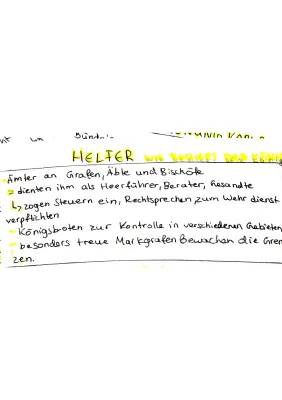 HELFER
Ämter an Grafen, Äbte und Bischöfe
dienten ihm als Heerführer, Berater, Gesandte
↳ zogen Steuern ein, Rechtsprechen, zum Wehrdienst
verpflichten
- Königsboten zur Kontrolle in verschiedenen Gebieten
- besonders treue Markgrafen Bewachen die Gren
zen.